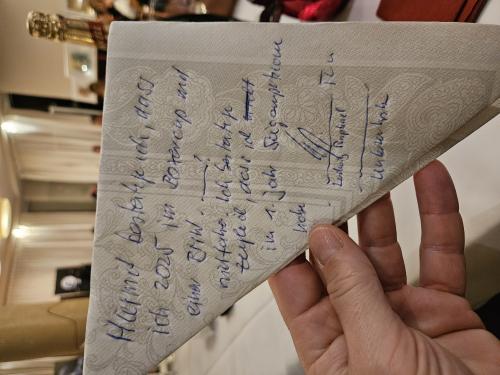 Hiermit bestätige ich, dass
ich 2025 im Rotaxcup mit
einer BMW
mitfahre. Ich bestätige
zugleich, dass ich
im 1. Jahr Siegambitionen
habe.
Ludwig Raphael
Unterschrift